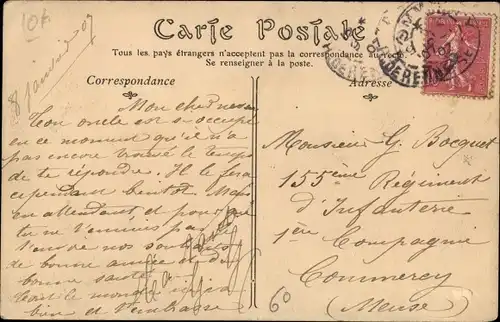 10f
8 janvier 07
Carte Postale
Tous les pays étrangers n'acceptent pas la correspondance au recto.
Se renseigner à la poste.
Correspondance
Mon cher neveu
Ton oncle est si occupé
en ce moment qu'il n'a
pas encore trouvé le temps
de te répondre. Il le fera
cependant bientôt. Mais
en attendant, et pour que
tu ne
de nos souhaits
de bonne année et de
bonne santé
Tout le monde
bien et t'embrasse
Adresse
Monsieur G. Bocquet
155ème Régiment
d'Infanterie
1ère Compagnie
Commercy
(Meuse)
60